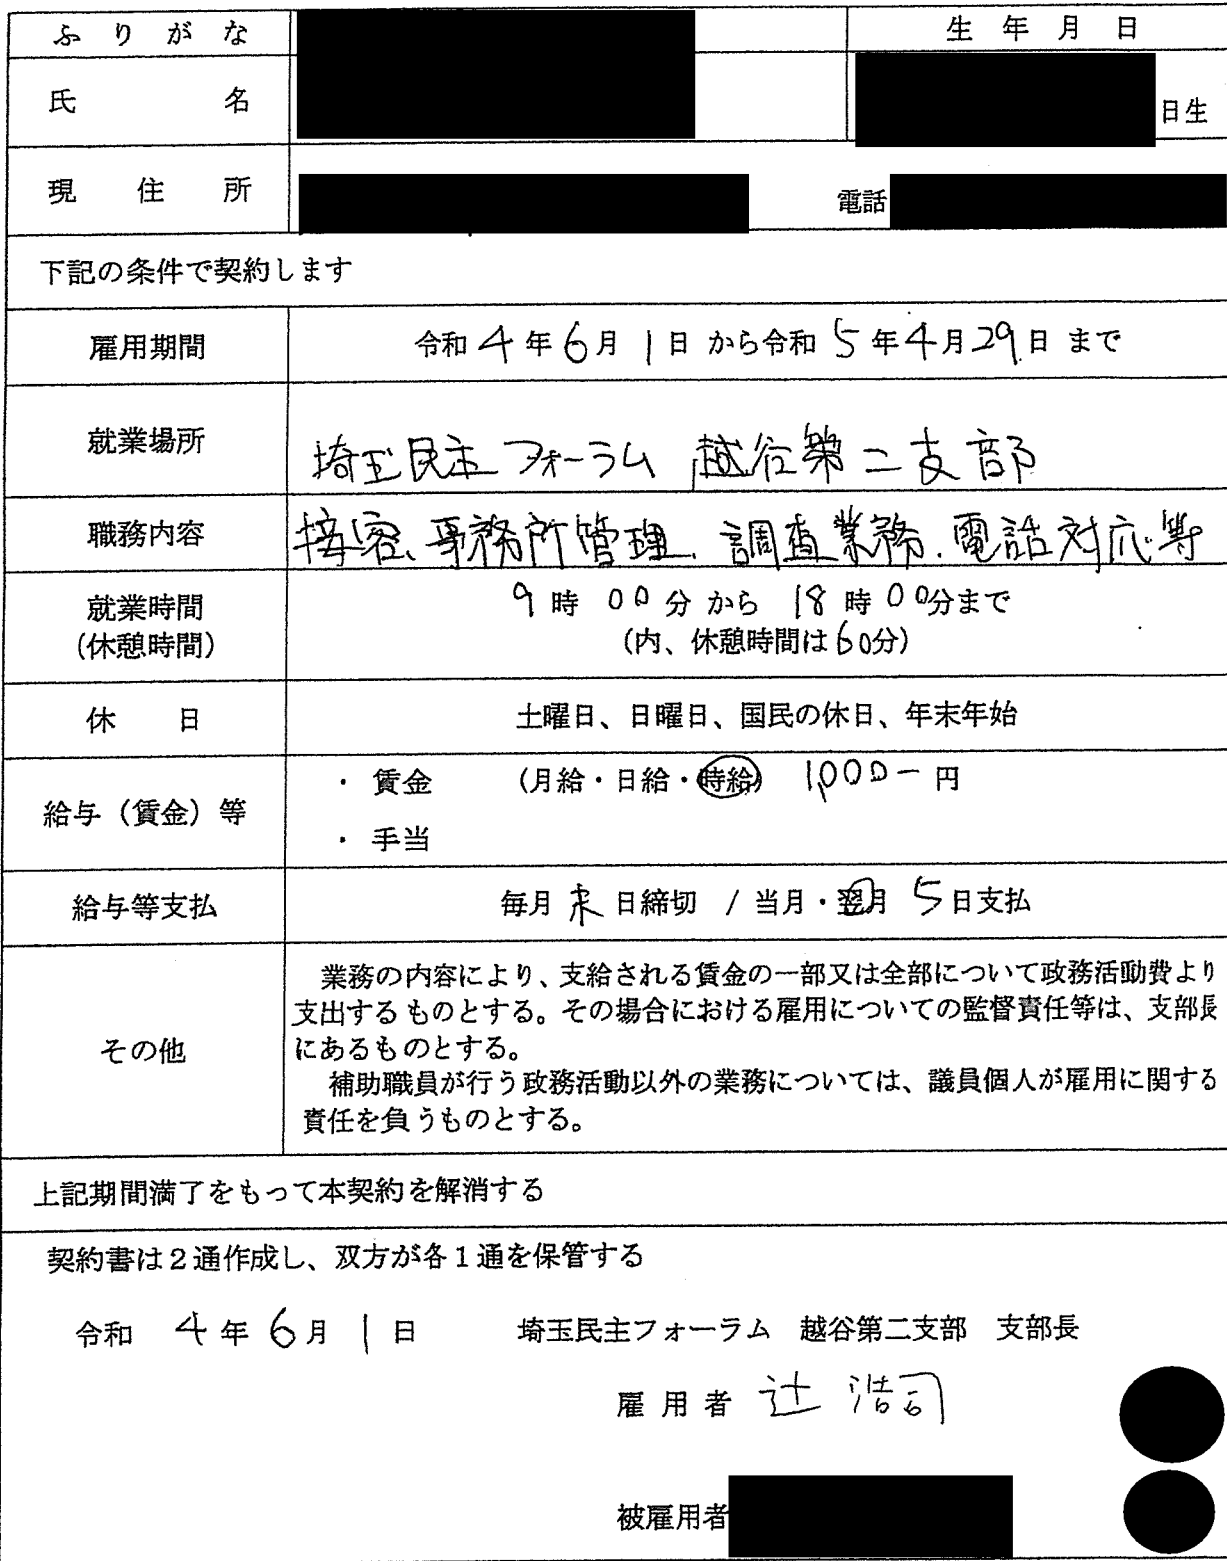 ふりがな
生年月日
氏名
日生
現住所
電話
下記の条件で契約します
雇用期間
令和 4 年 6 月 1 日 から令和 5 年 4 月 29 日 まで
就業場所
埼玉民主フォーラム 越谷第二支部
職務内容
接客、事務所管理、調査業務、電話対応等
就業時間
(休憩時間)
9 時 00 分 から 18 時 00分まで
(内、休憩時間は60分)
休日
土曜日、日曜日、国民の休日、年末年始
給与(賃金)等
・ 賃金 (月給・日給・時給) 1,000ー 円
・ 手当
給与等支払
毎月 末 日締切 / 当月・翌月 5 日支払
その他
業務の内容により、支給される賃金の一部又は全部について政務活動費より
支出するものとする。その場合における雇用についての監督責任等は、支部長
にあるものとする。
補助職員が行う政務活動以外の業務については、議員個人が雇用に関する
責任を負うものとする。
上記期間満了をもって本契約を解消する
契約書は2通作成し、双方が各1通を保管する
令和 4 年 6 月 1 日 埼玉民主フォーラム 越谷第二支部 支部長
雇用者 辻 浩司
被雇用者